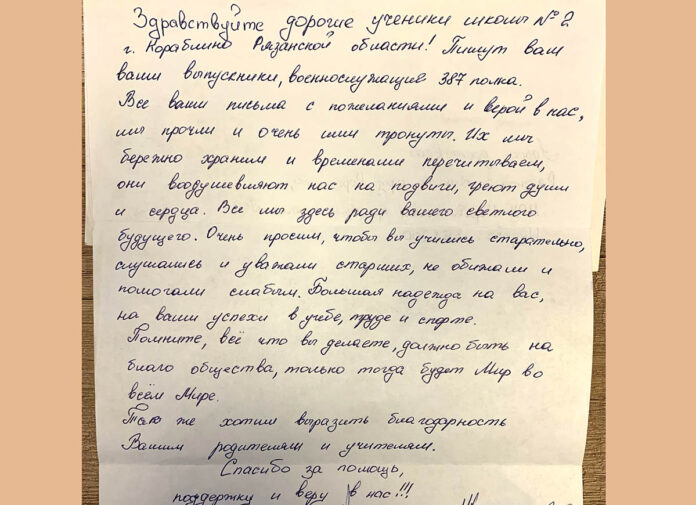 Здравствуйте дорогие ученики школы №2
г. Кораблино Рязанской области! Пишут вам
ваши выпускники, военнослужащие 387 полка.
Все ваши письма с пожеланиями и верой в нас,
мы прочли и очень ими тронуты. Их мы
бережно храним и временами перечитываем,
они воодушевляют нас на подвиги, греют души
и сердца. Все мы здесь ради вашего светлого
будущего. Очень просим, чтобы вы учились старательно,
слушались и уважали старших, не обижали и
помогали слабым. Большая надежда на вас,
на ваши успехи в учёбе, труде и спорте.
Помните, всё что вы делаете, должно быть на
благо общества, только тогда будет Мир во
всём Мире.
Так же хотим выразить благодарность
Вашим родителям и учителям.
Спасибо за помощь,
поддержку и веру в нас!!!